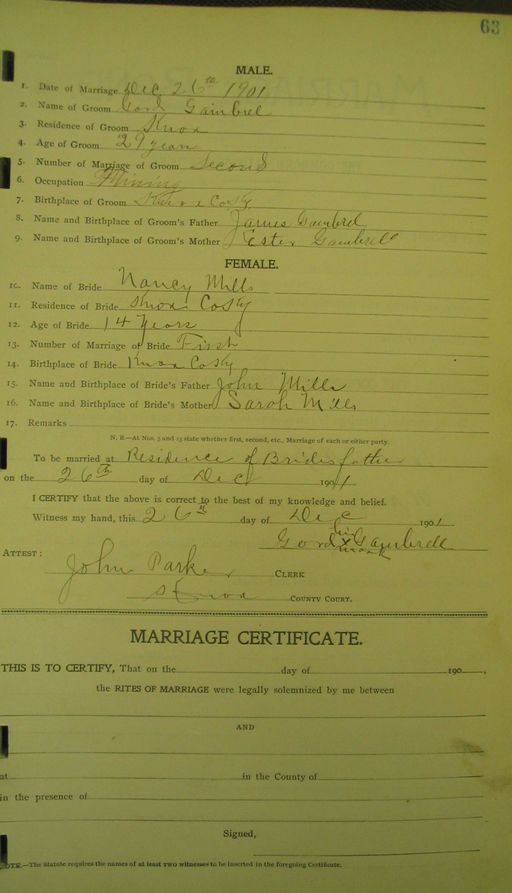 63
MALE.
1. Date of Marriage Dec 26th 1901
2. Name of Groom Gord Gambrel
3. Residence of Groom Knox
4. Age of Groom 29 years
5. Number of Marriage of Groom Second
6. Occupation Mining
7. Birthplace of Groom Knox Co Ky
8. Name and Birthplace of Groom's Father James Gambrel
9. Name and Birthplace of Groom's Mother Ester Gambrell
FEMALE.
10. Name of Bride Nancy Mills
11. Residence of Bride Knox Co Ky
12. Age of Bride 14 Years
13. Number of Marriage of Bride First
14. Birthplace of Bride Knox Co Ky
15. Name and Birthplace of Bride's Father John Mills
16. Name and Birthplace of Bride's Mother Sarah Mills
17. Remarks
N. B.—At Nos. 5 and 13 state whether first, second, etc., Marriage of each or either party.
To be married at Residence of Brides father
on the 26th day of Dec 1901
I CERTIFY that the above is correct to the best of my knowledge and belief.
Witness my hand, this 26th day of Dec 1901.
Gord his x mark Gambrell
ATTEST:
John Parker CLERK
Knox COUNTY COURT.
MARRIAGE CERTIFICATE.
THIS IS TO CERTIFY, That on the day of 190 ,
the RITES OF MARRIAGE were legally solemnized by me between
AND
at in the County of
in the presence of
Signed,
NOTE.—The Statute requires the names of at least two witnesses to be inserted in the foregoing Certificate.